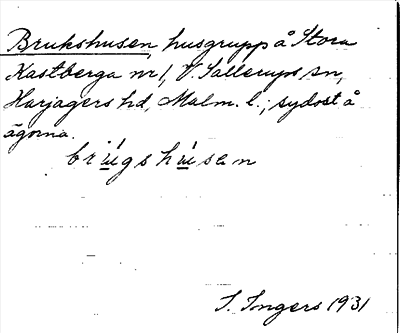 Brukshusen, husgrupp å Stora
Kastberga nr 1, V. Sallerups sn,
Harjagers hd, Malm. l.; sydost å
ägorna.
brúgshúsan
I. Ingers 1931